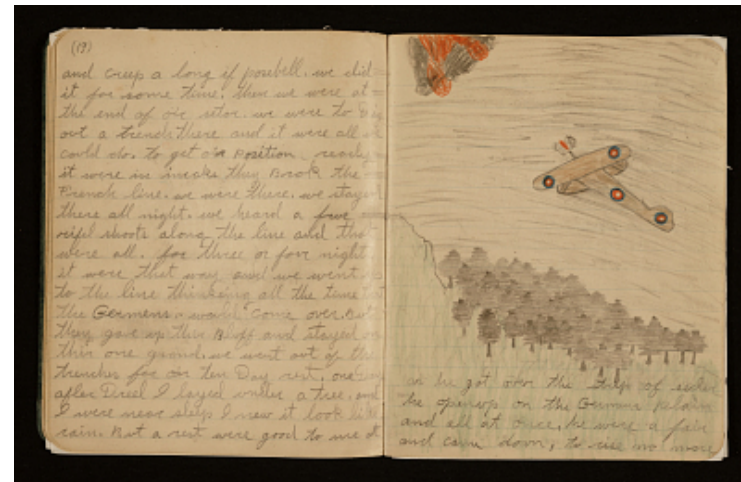 (13)
and creep a long if posebell. we did
it for some time. then we were at
the end of oir setor. we were to Dig
out a trench there and it were all we
could do. to get oir Position ready
it were in incaks they Brock the
French line. we were there. we stayed
there all night. we heard a few
rifel shoots along the line and that
were all. for three or four night
it were that way and we went
to the line thinking all the time that
the Germens would come over. But
they gave up this Bluff and stayed on
this one ground. we went out of the
trenches for oir ten Day rest, one
after Dreel I layed under a tree. and
I were near sleep I new it look like
rain. But a rest were good to me at
as he got over the
he openup on the German
and all at once. he were a fair
and came down, to rise no more